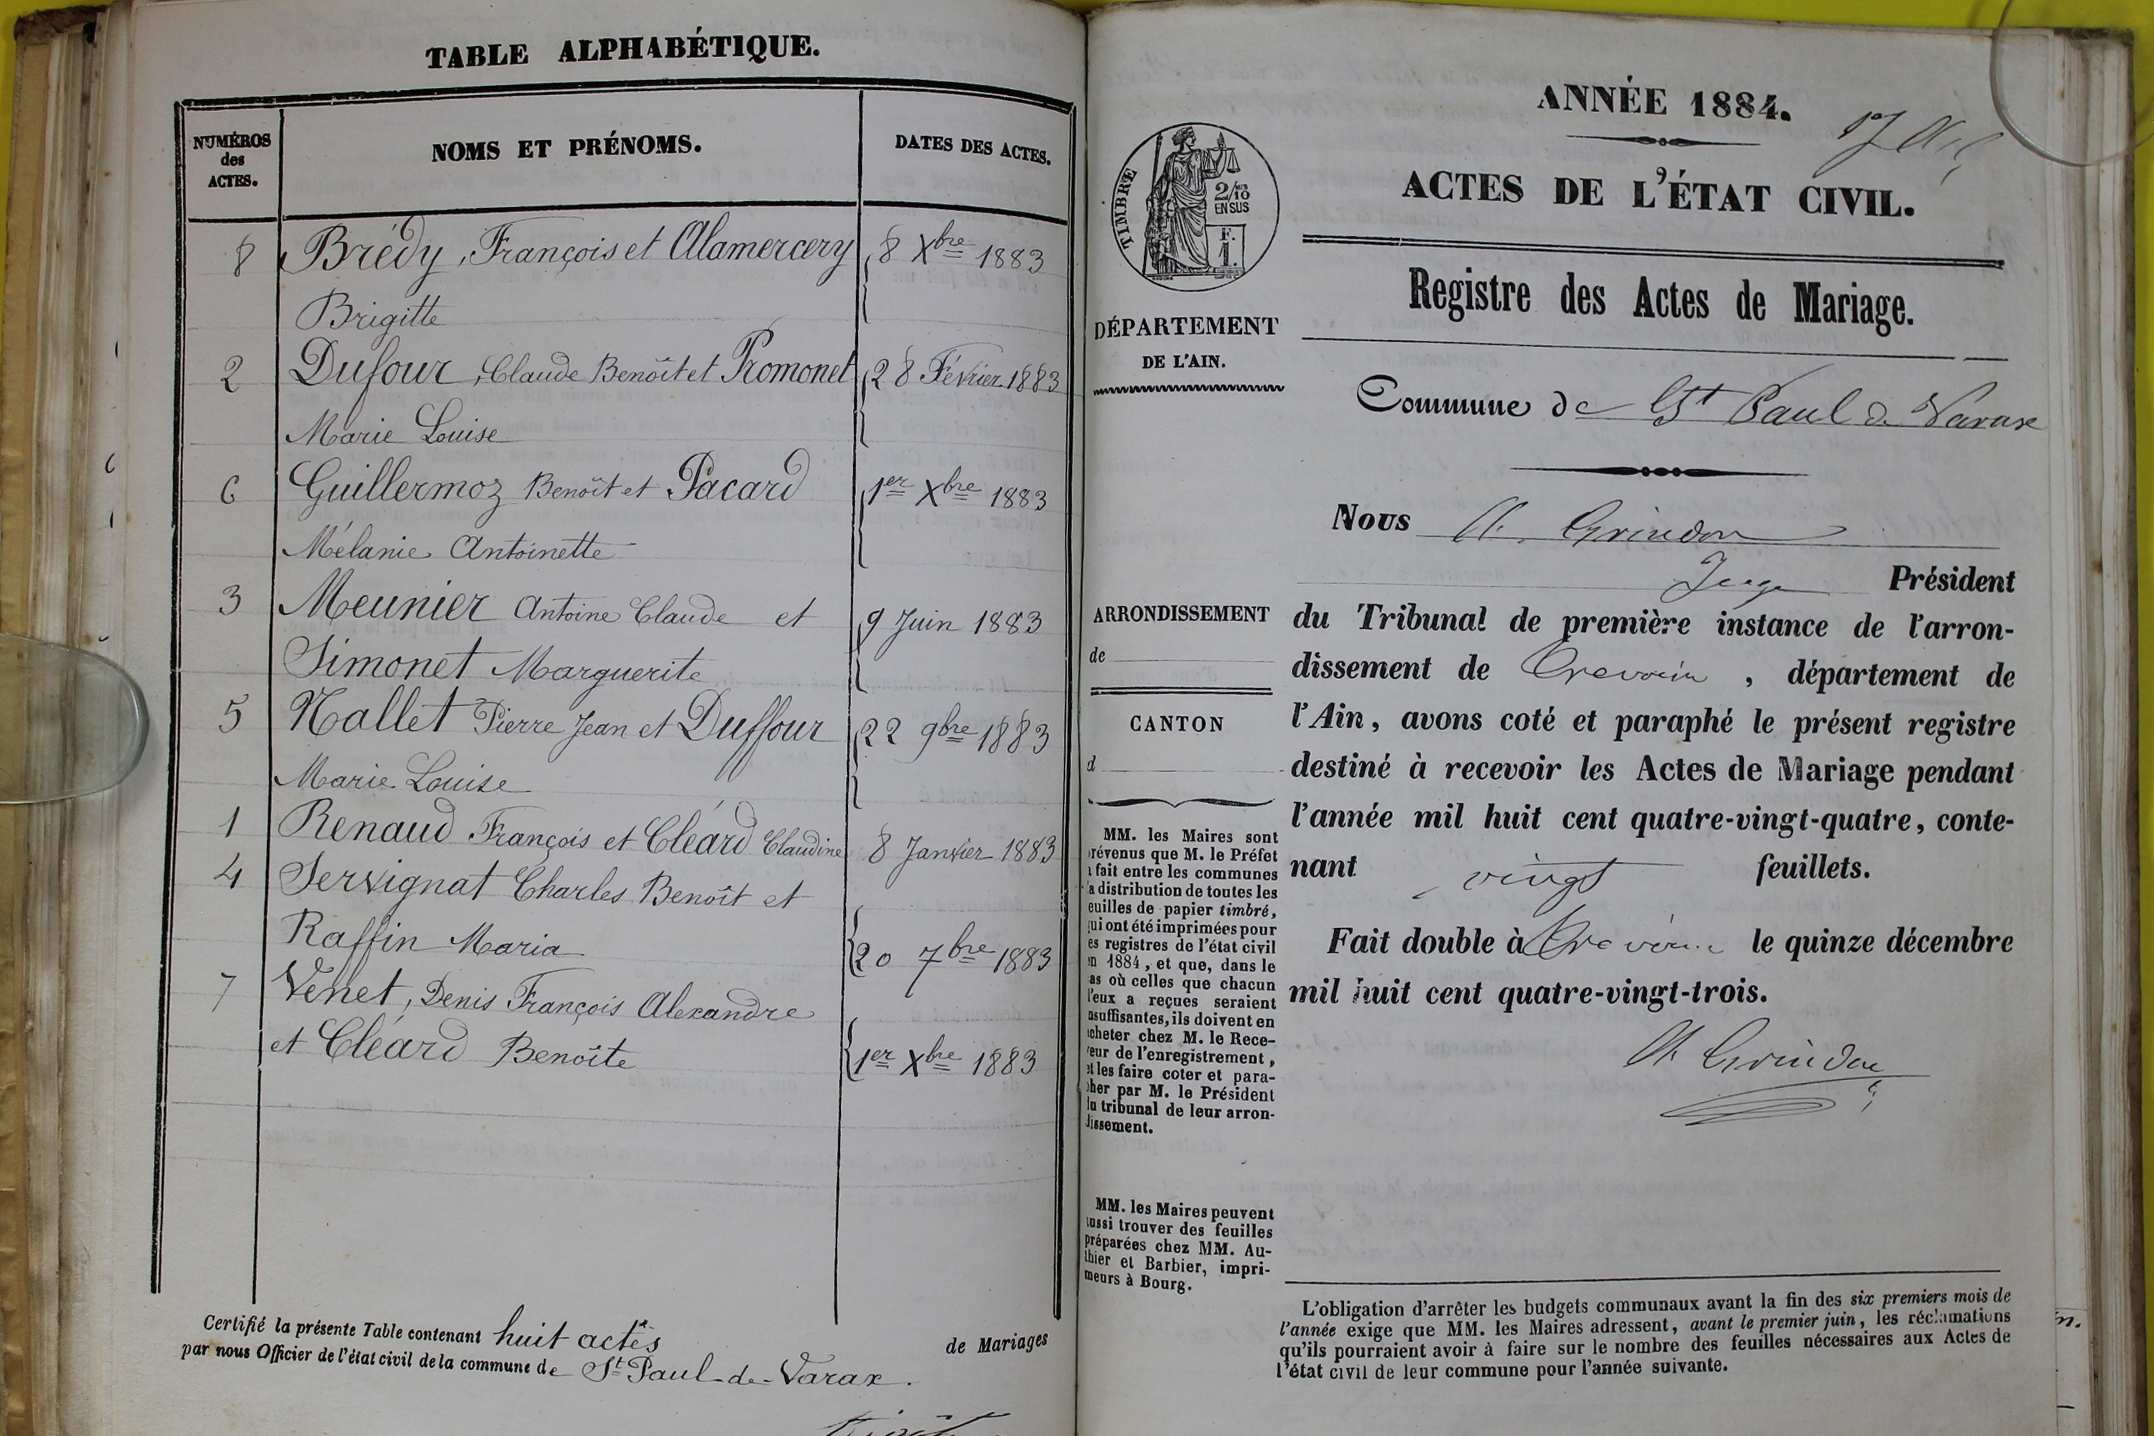 TABLE ALPHABÉTIQUE.
NUMÉROS
des
ACTES.
NOMS ET PRÉNOMS.
DATES DES ACTES.
8 Brédy, François et Alamercery 8 Xbre 1883
Brigitte
2 Dufour, Claude Benoît et Promonet 28 Février 1883
Marie Louise
6 Guillermoz Benoît et Pacard 1er Xbre 1883
Mélanie Antoinette
3 Meunier Antoine Claude et 9 Juin 1883
Simonet Marguerite
5 Nallet Pierre Jean et Duffour 22 9bre 1883
Marie Louise
1 Renaud François et Cléard Claudine 8 Janvier 1883
4 Servignat Charles Benoît et
Raffin Maria 20 7bre 1883
7 Venet, Denis François Alexandre
et Cléard Benoîte 1er Xbre 1883
Certifié la présente Table contenant huit actes de Mariages
par nous Officier de l'état civil de la commune de St Paul-de-Varax.
ANNÉE 1884.
ACTES DE L'ÉTAT CIVIL.
TIMBRE
2/10
EN SUS
F.
1.
Registre des Actes de Mariage.
DÉPARTEMENT
DE L'AIN.
Commune de St Paul de Varax
Nous Ch. Grindon
Juge Président
du Tribunal de première instance de l'arron-
dissement de Trévoux, département de
l'Ain, avons coté et paraphé le présent registre
destiné à recevoir les Actes de Mariage pendant
l'année mil huit cent quatre-vingt-quatre, conte-
nant vingt feuillets.
Fait double à Trévoux le quinze décembre
mil huit cent quatre-vingt-trois.
Ch Grindon
ARRONDISSEMENT
de
CANTON
d
MM. les Maires sont
révenus que M. le Préfet
a fait entre les communes
la distribution de toutes les
euilles de papier timbré,
qui ont été imprimées pour
es registres de l'état civil
en 1884, et que, dans le
as où celles que chacun
l'eux a reçues seraient
nsuffisantes, ils doivent en
cheter chez M. le Rece-
veur de l'enregistrement,
et les faire coter et para-
pher par M. le Président
du tribunal de leur arron-
dissement.
MM. les Maires peuvent
ussi trouver des feuilles
préparées chez MM. Au-
thier et Barbier, impri-
meurs à Bourg.
L'obligation d'arrêter les budgets communaux avant la fin des six premiers mois de
l'année exige que MM. les Maires adressent, avant le premier juin, les réclamations
qu'ils pourraient avoir à faire sur le nombre des feuilles nécessaires aux Actes de
l'état civil de leur commune pour l'année suivante.